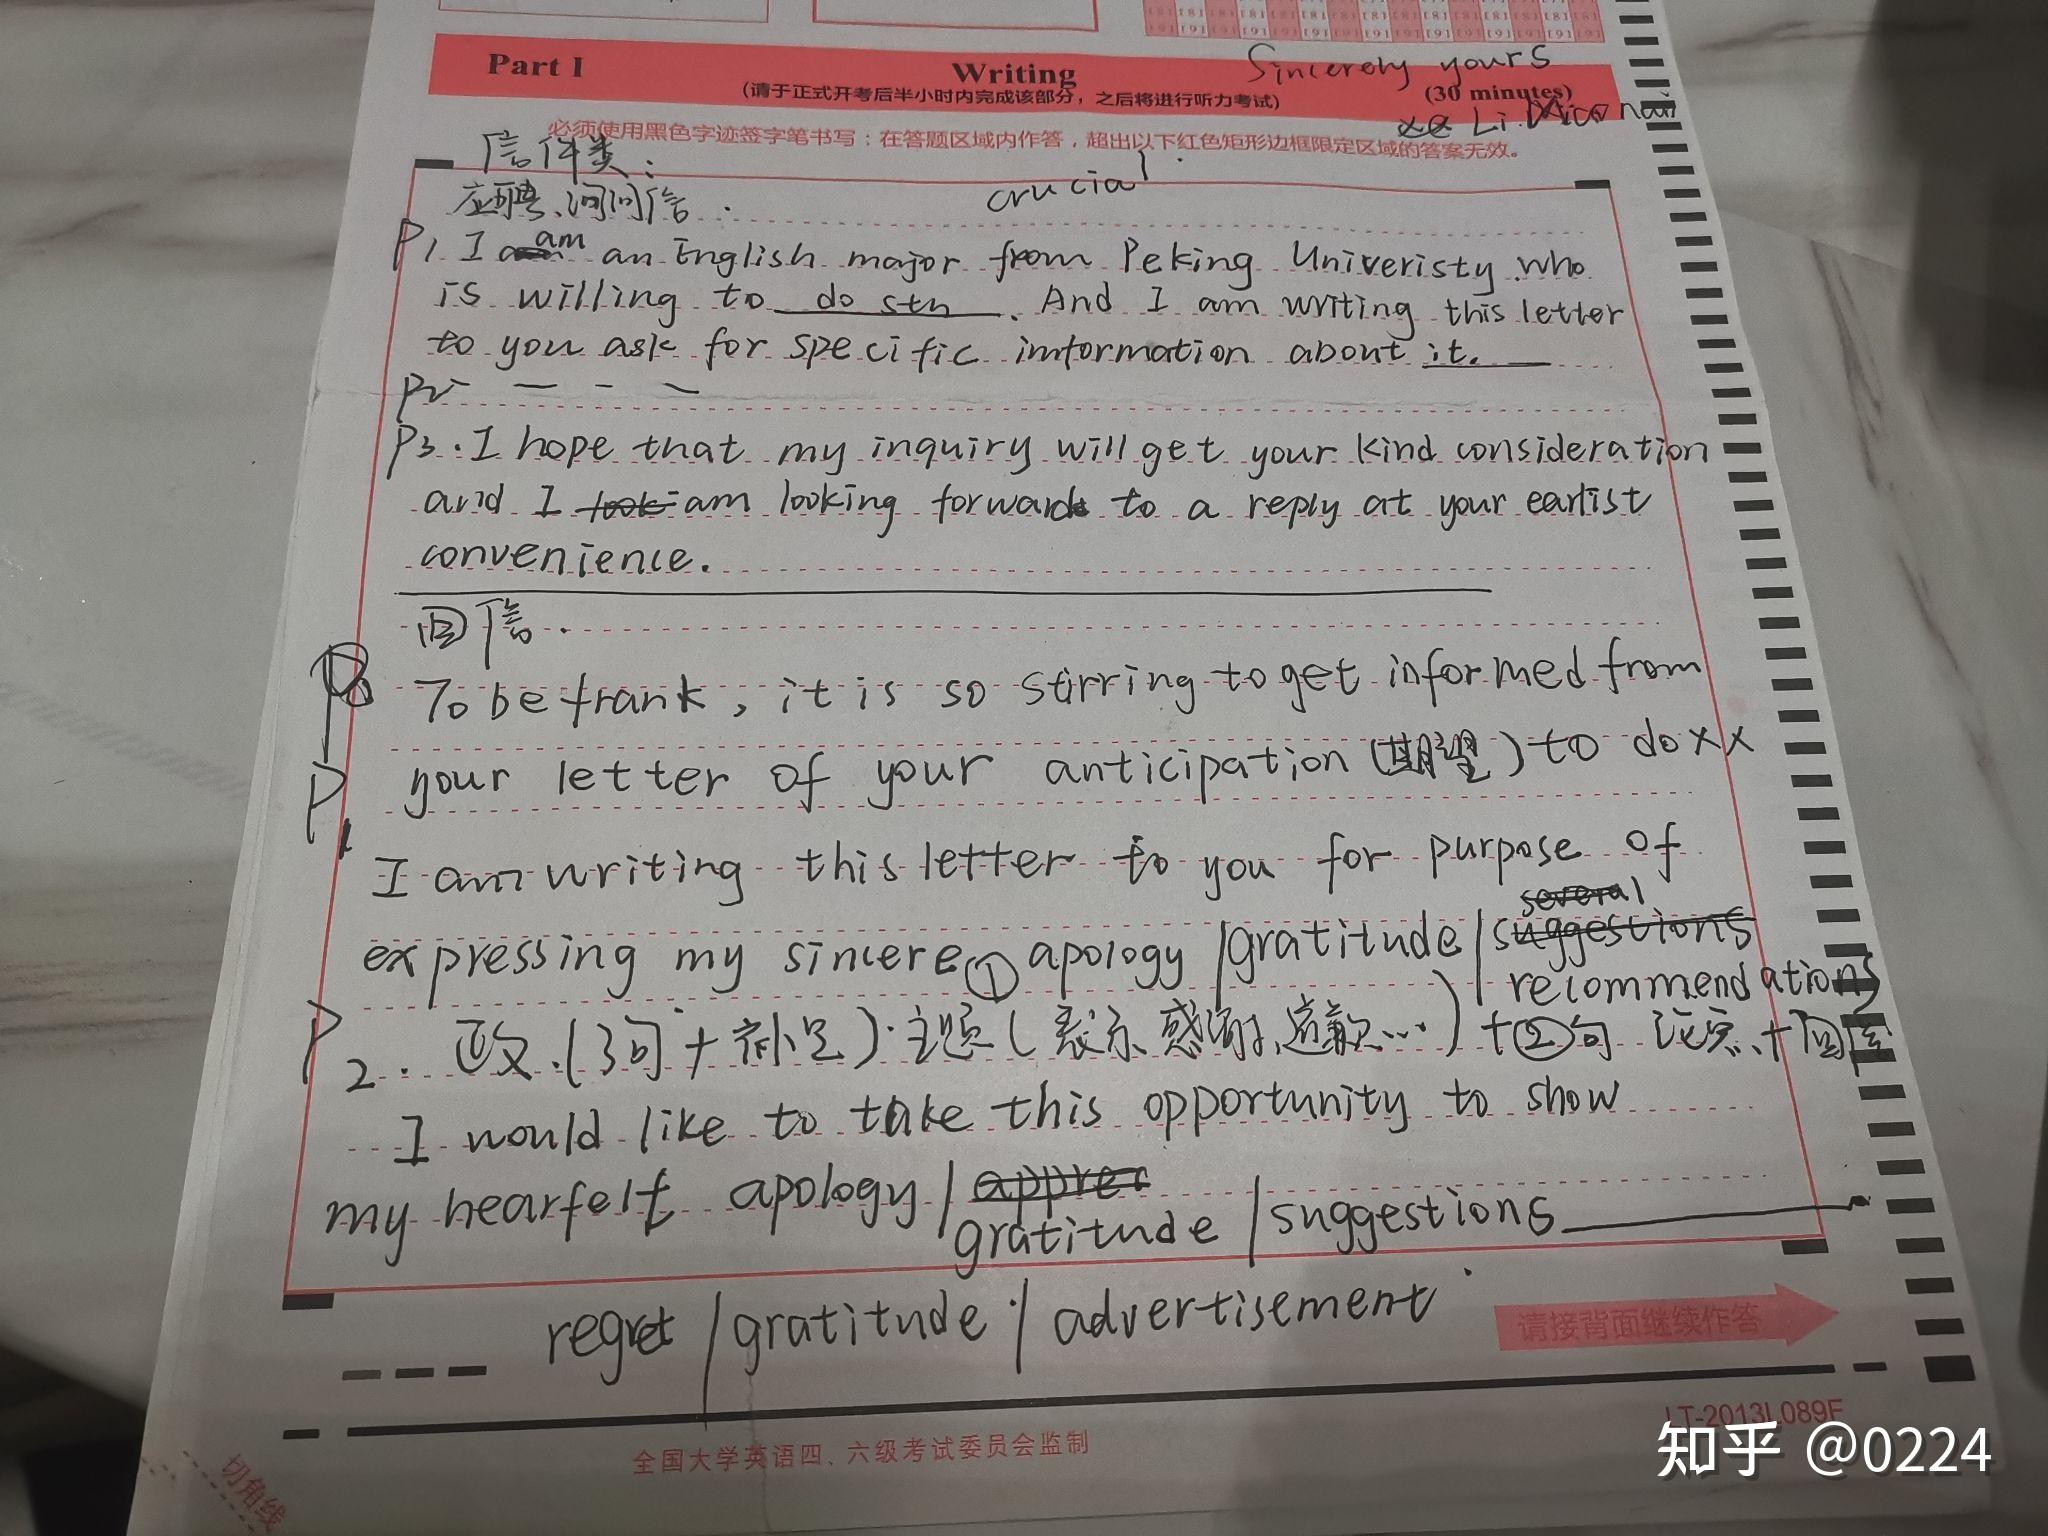 Part I
Writing
(请于正式开考后半小时内完成该部分，之后将进行听力考试)
(30 minutes)
Sincerely yours
Li
必须使用黑色字迹签字笔书写：在答题区域内作答，超出以下红色矩形边框限定区域的答案无效。
信件类：
应聘、询问信.
crucial
P1. I am an English major from Peking Univeristy who
is willing to do sth. And I am writing this letter
to you ask for specific imformation about it.
P2
P3. I hope that my inquiry will get your kind consideration
and I look am looking forward to a reply at your earlist
convenience.
回信.
P1
To be frank, it is so stirring to get informed from
your letter of your anticipation (期望) to do xx
I am writing this letter to you for purpose of
expressing my sincere ① apology / gratitude / suggestions
several
recommendations
P2. 正文.(3问+补足).主题(表示感谢,道歉…)+②句
I would like to take this opportunity to show
my hearfelt apology / apprer
gratitude / suggestions
regret / gratitude / advertisement
请接背面继续作答
LT-2013L089F
全国大学英语四、六级考试委员会监制
切角线
知乎 @0224